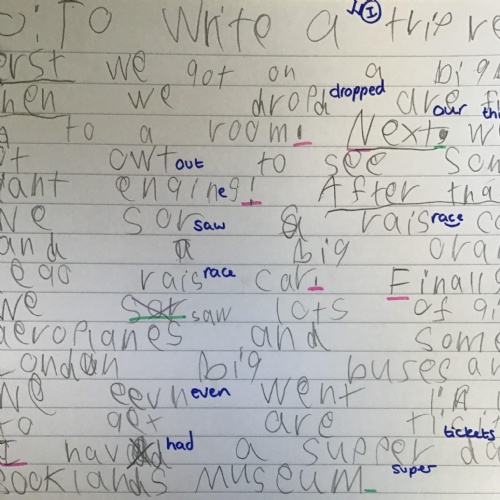 o: To Write a trip re
erst we got on a big
hen we dropd dropped are our thi
to a room. Next, w
ot owt out to see som
iant engines! e After tha
we sor saw a rais race co
and a big oran
lego rais race car. Finall
we saw lots of gi
aeroplanes and some
London big buses an
we eevn even went in a
to get are tickets
I had had a supper da
Brooklands museum. super